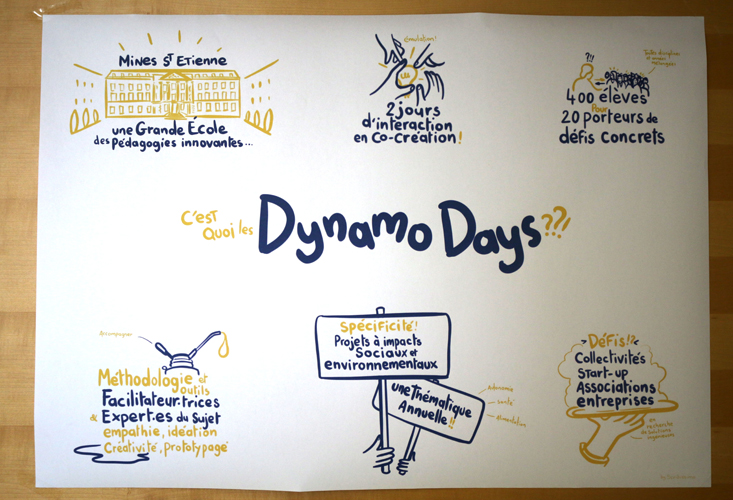 Mines St Etienne
une Grande École
des Pédagogies innovantes...
émulation!
2 jours
d'interaction
en Co-Création!
?!!
400 élèves
Pour
20 porteurs de
défis concrets
C'est
Quoi les
Dynamo Days??!
Accompagner
Méthodologie et
outils
Facilitateur.trices
& Expert.es du Sujet
empathie, idéation
Créativité, prototypage
Spécificité!
Projets à impacts
Sociaux et
environnementaux
une Thématique
Annuelle!!
Autonomie
Santé
Alimentation
Défis!?
Collectivités
Start-up
Associations
entreprises
en
recherche
de solutions